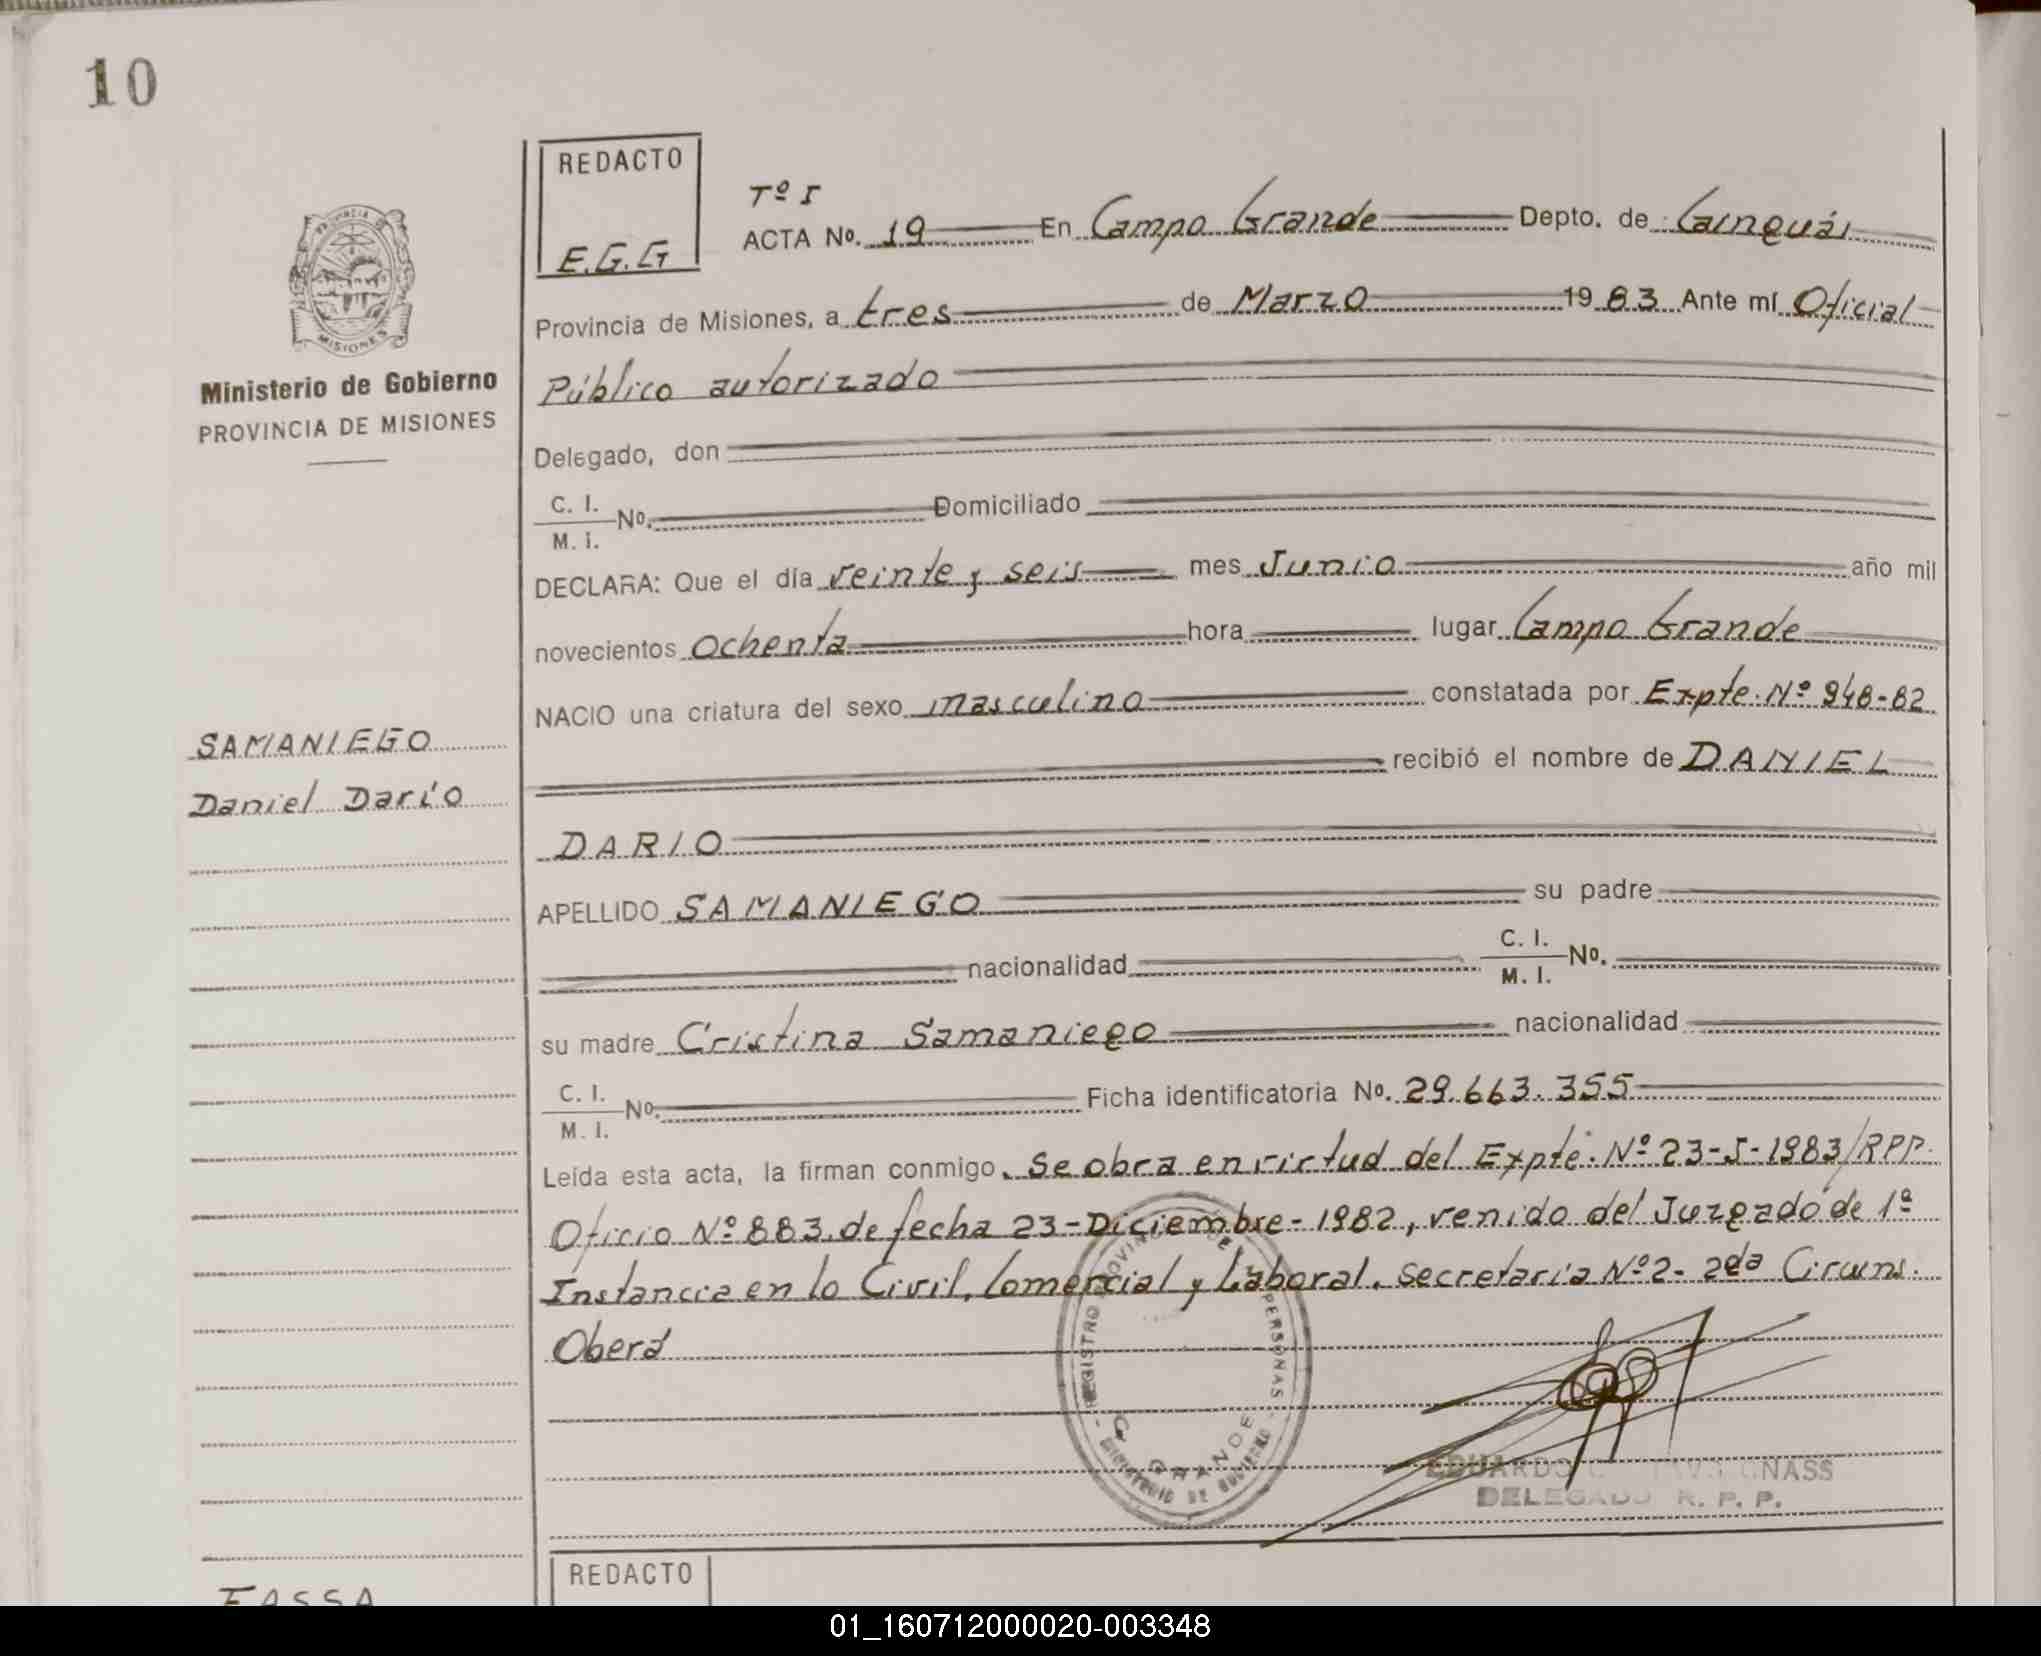 10
REDACTO
E.G.G
Tº I
ACTA No. 19 En Campo Grande Depto. de Cainguás
Provincia de Misiones, a tres de Marzo 1983 Ante mí Oficial
Público autorizado
Ministerio de Gobierno
PROVINCIA DE MISIONES
MISIONES
Delegado, don
C. I.
M. I. No. Domiciliado
DECLARA: Que el día veinte y seis mes Junio año mil
novecientos Ochenta hora lugar Campo Grande
NACIO una criatura del sexo masculino constatada por Expte. Nº 948-82
recibió el nombre de DANIEL
SAMANIEGO
Daniel Darío
DARIO
APELLIDO SAMANIEGO su padre
nacionalidad C. I.
M. I. No.
su madre Cristina Samaniego nacionalidad
C. I.
M. I. No. Ficha identificatoria No. 29.663.355
Leída esta acta, la firman conmigo, Se obra en virtud del Expte. Nº 23-S-1983/RPP.
Oficio Nº 883, de fecha 23-Diciembre-1982, venido del Juzgado de 1ª
Instancia en lo Civil, Comercial y Laboral. Secretaría Nº 2- 2da Circuns.
Oberá
REGISTRO PROVINCIAL DE PERSONAS
C. GRANDE
MINISTERIO DE GOBIERNO
EDUARDO
DELEGADO R. P. P.
REDACTO
FASSA
01_160712000020-003348